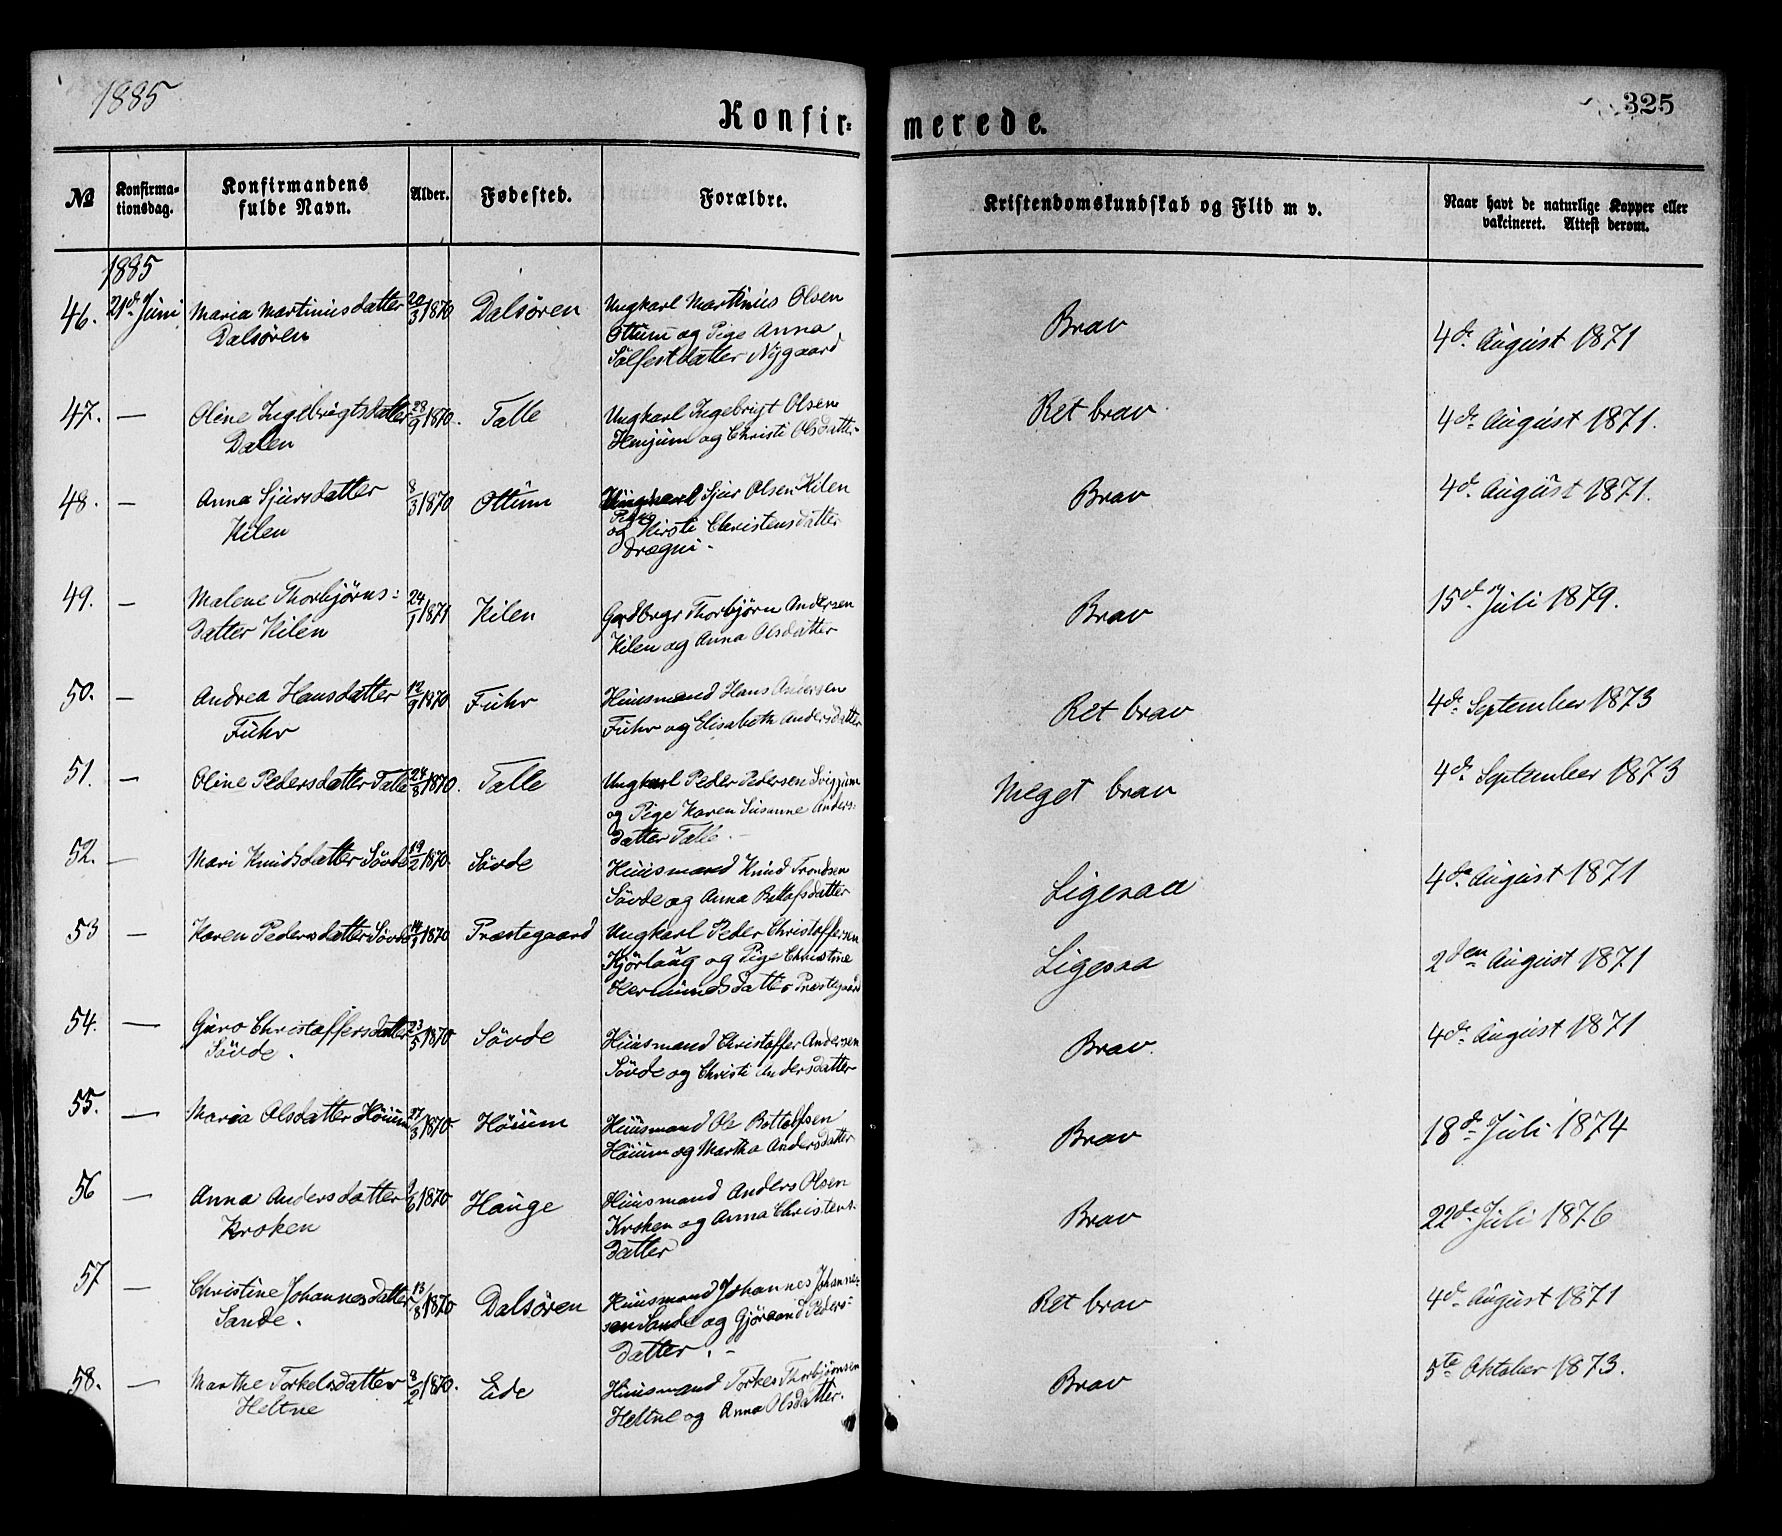 1885
Konfir-
merede.
325
No
Konfirma-
tionsdag.
Konfirmandens
fulde Navn.
Alder.
Fødested.
Forældre.
Kristendomskundskab og Flid m v.
Naar havt de naturlige Kopper eller
vakcineret. Attest derom.
1885
46. 21de Juni Maria Martinusdatter 20/3 1870 Dalsören Ungkarl Martinus Olsen Brav 4de August 1871
Dalsören Ottum og Pige Anna
Sölfestdatter Nygaard
47. — Oline Ingebrigtsdatter 1870. Talle Ungkarl Ingebrigt Olsen Ret brav 4de August 1871.
Dalen Henjum og Christi Olsdatter
48. — Anna Sjursdatter 8/3 1870 Ottum Ungkarl Sjur Olsen Kilen Brav 4de August 1871.
Kilen Pige
og Kirsti Christensdatter
Drægni.
49. — Malene Thorbjörns- 24/1 1871 Kilen Gardbrgr Thorbjörn Andersen Brav 15de Juli 1879.
datter Kilen Kilen og Anna Olsdatter
50. — Andrea Hansdatter 12/9 1870 Fuhr Huusmand Hans Andersen Ret brav 4de September 1873
Fuhr Fuhr og Elisabeth Andersdatter
51. — Oline Pedersdatter Talle 24/8 1870. Talle Ungkarl Peder Pedersen Sviggum Meget brav 4de September 1873
og Pige Karen Susanne Anders-
datter Talle —
52. — Mari Knudsdatter Sövde 19/2 1870. Sövde Huusmand Knud Trondsen Ligesaa 4de August 1871
Sövde og Anna Botlofsdatter
53 — Karen Pedersdatter Sövde 1870 Præstegaard Ungkarl Peder Christoffersen Ligesaa 2den August 1871
Kjörlaug og Pige Christine
Hermundsdatter Præstegaard
54. — Guro Christoffersdatter 23/5 1870 Sövde Huusmand Christoffer Andersen Brav. 4de August 1871
Sövde. Sövde og Christi Andersdatter
55. — Maria Olsdatter Höium 27/3 1870 Höium Huusmand Ole Bottolfsen Brav 18de Juli 1874
Höium og Martha Andersdatter
56 — Anna Andersdatter 1870 Hauge Huusmand Anders Olsen Brav 22de Juli 1876
Kroken Kroken og Anna Christens-
datter
57 — Christine Johannesdatter 13/8 1870 Dalsören Huusmand Johannes Johanne- Ret brav 4de August 1871
Sande. sen Sande og Gjöraand Peders-
datter. —
58. — Marthe Torkelsdatter 8/2 1870. Eide Huusmand Torkel Thorbjörnsen Brav 5te Oktober 1873.
Heltne Heltne og Anna Olsdatter.